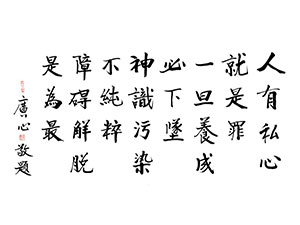 人有私心
就是罪
一旦養成
必下墜
神識污染
不純粹
障碍解脱
是為最
廣心敬題